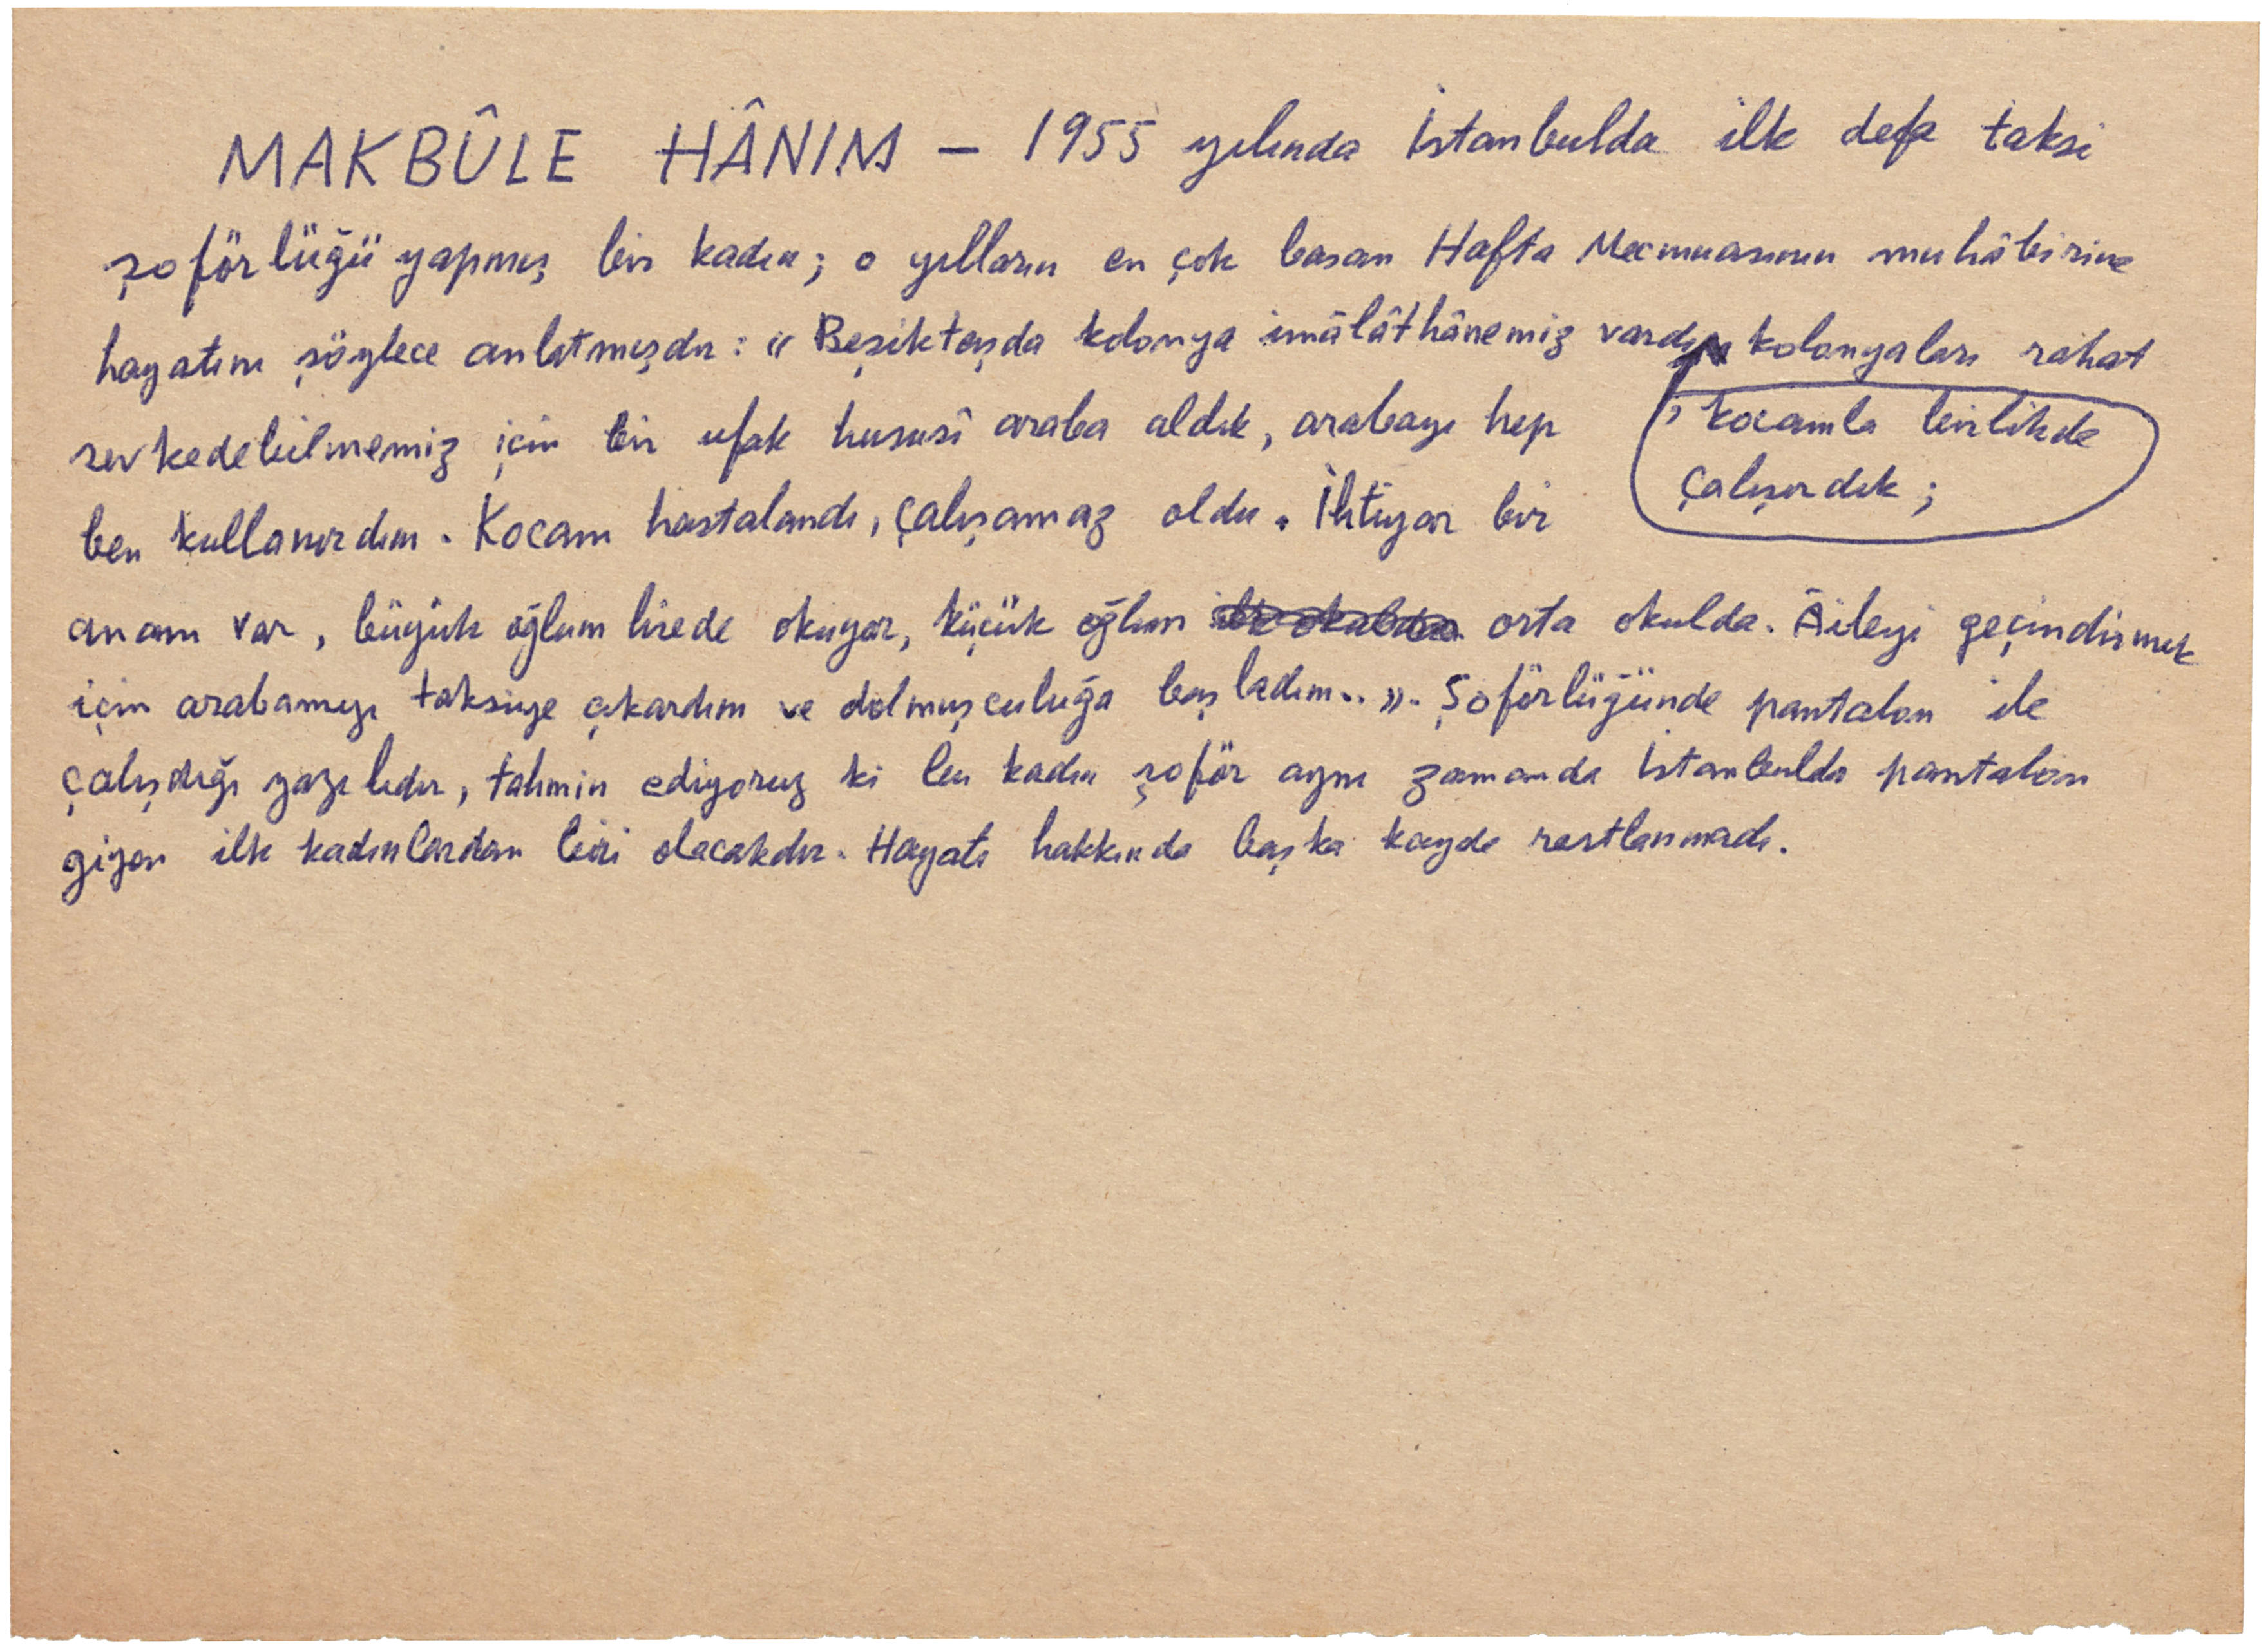 MAKBÛLE HÂNIM — 1955 yılında İstanbulda ilk defa taksi
şoförlüğü yapmış bir kadın; o yılların en çok basan Hafta Mecmuasının muhâbirine
hayatını şöylece anlatmışdır: « Beşiktaşda kolonya imâlâthânemiz vardı kolonyaları rahat
, kocamla birlikde
çalışırdık ;
sevkedebilmemiz için bir ufak hususî araba aldık, arabayı hep
ben kullanırdım. Kocam hastalandı, çalışamaz oldu. İhtiyar bir
anam var, büyük oğlum lisede okuyor, küçük oğlum orta okulda. Âileyi geçindirmek
için arabamızı taksiye çıkardım ve dolmuşculuğa başladım.. ». Şoförlüğünde pantalon ile
çalışdığı yazılıdır, tahmin ediyoruz ki bu kadın şoför aynı zamanda İstanbulda pantalon
giyen ilk kadınlardan biri olacakdır. Hayatı hakkında başka kayde rastlanmadı.